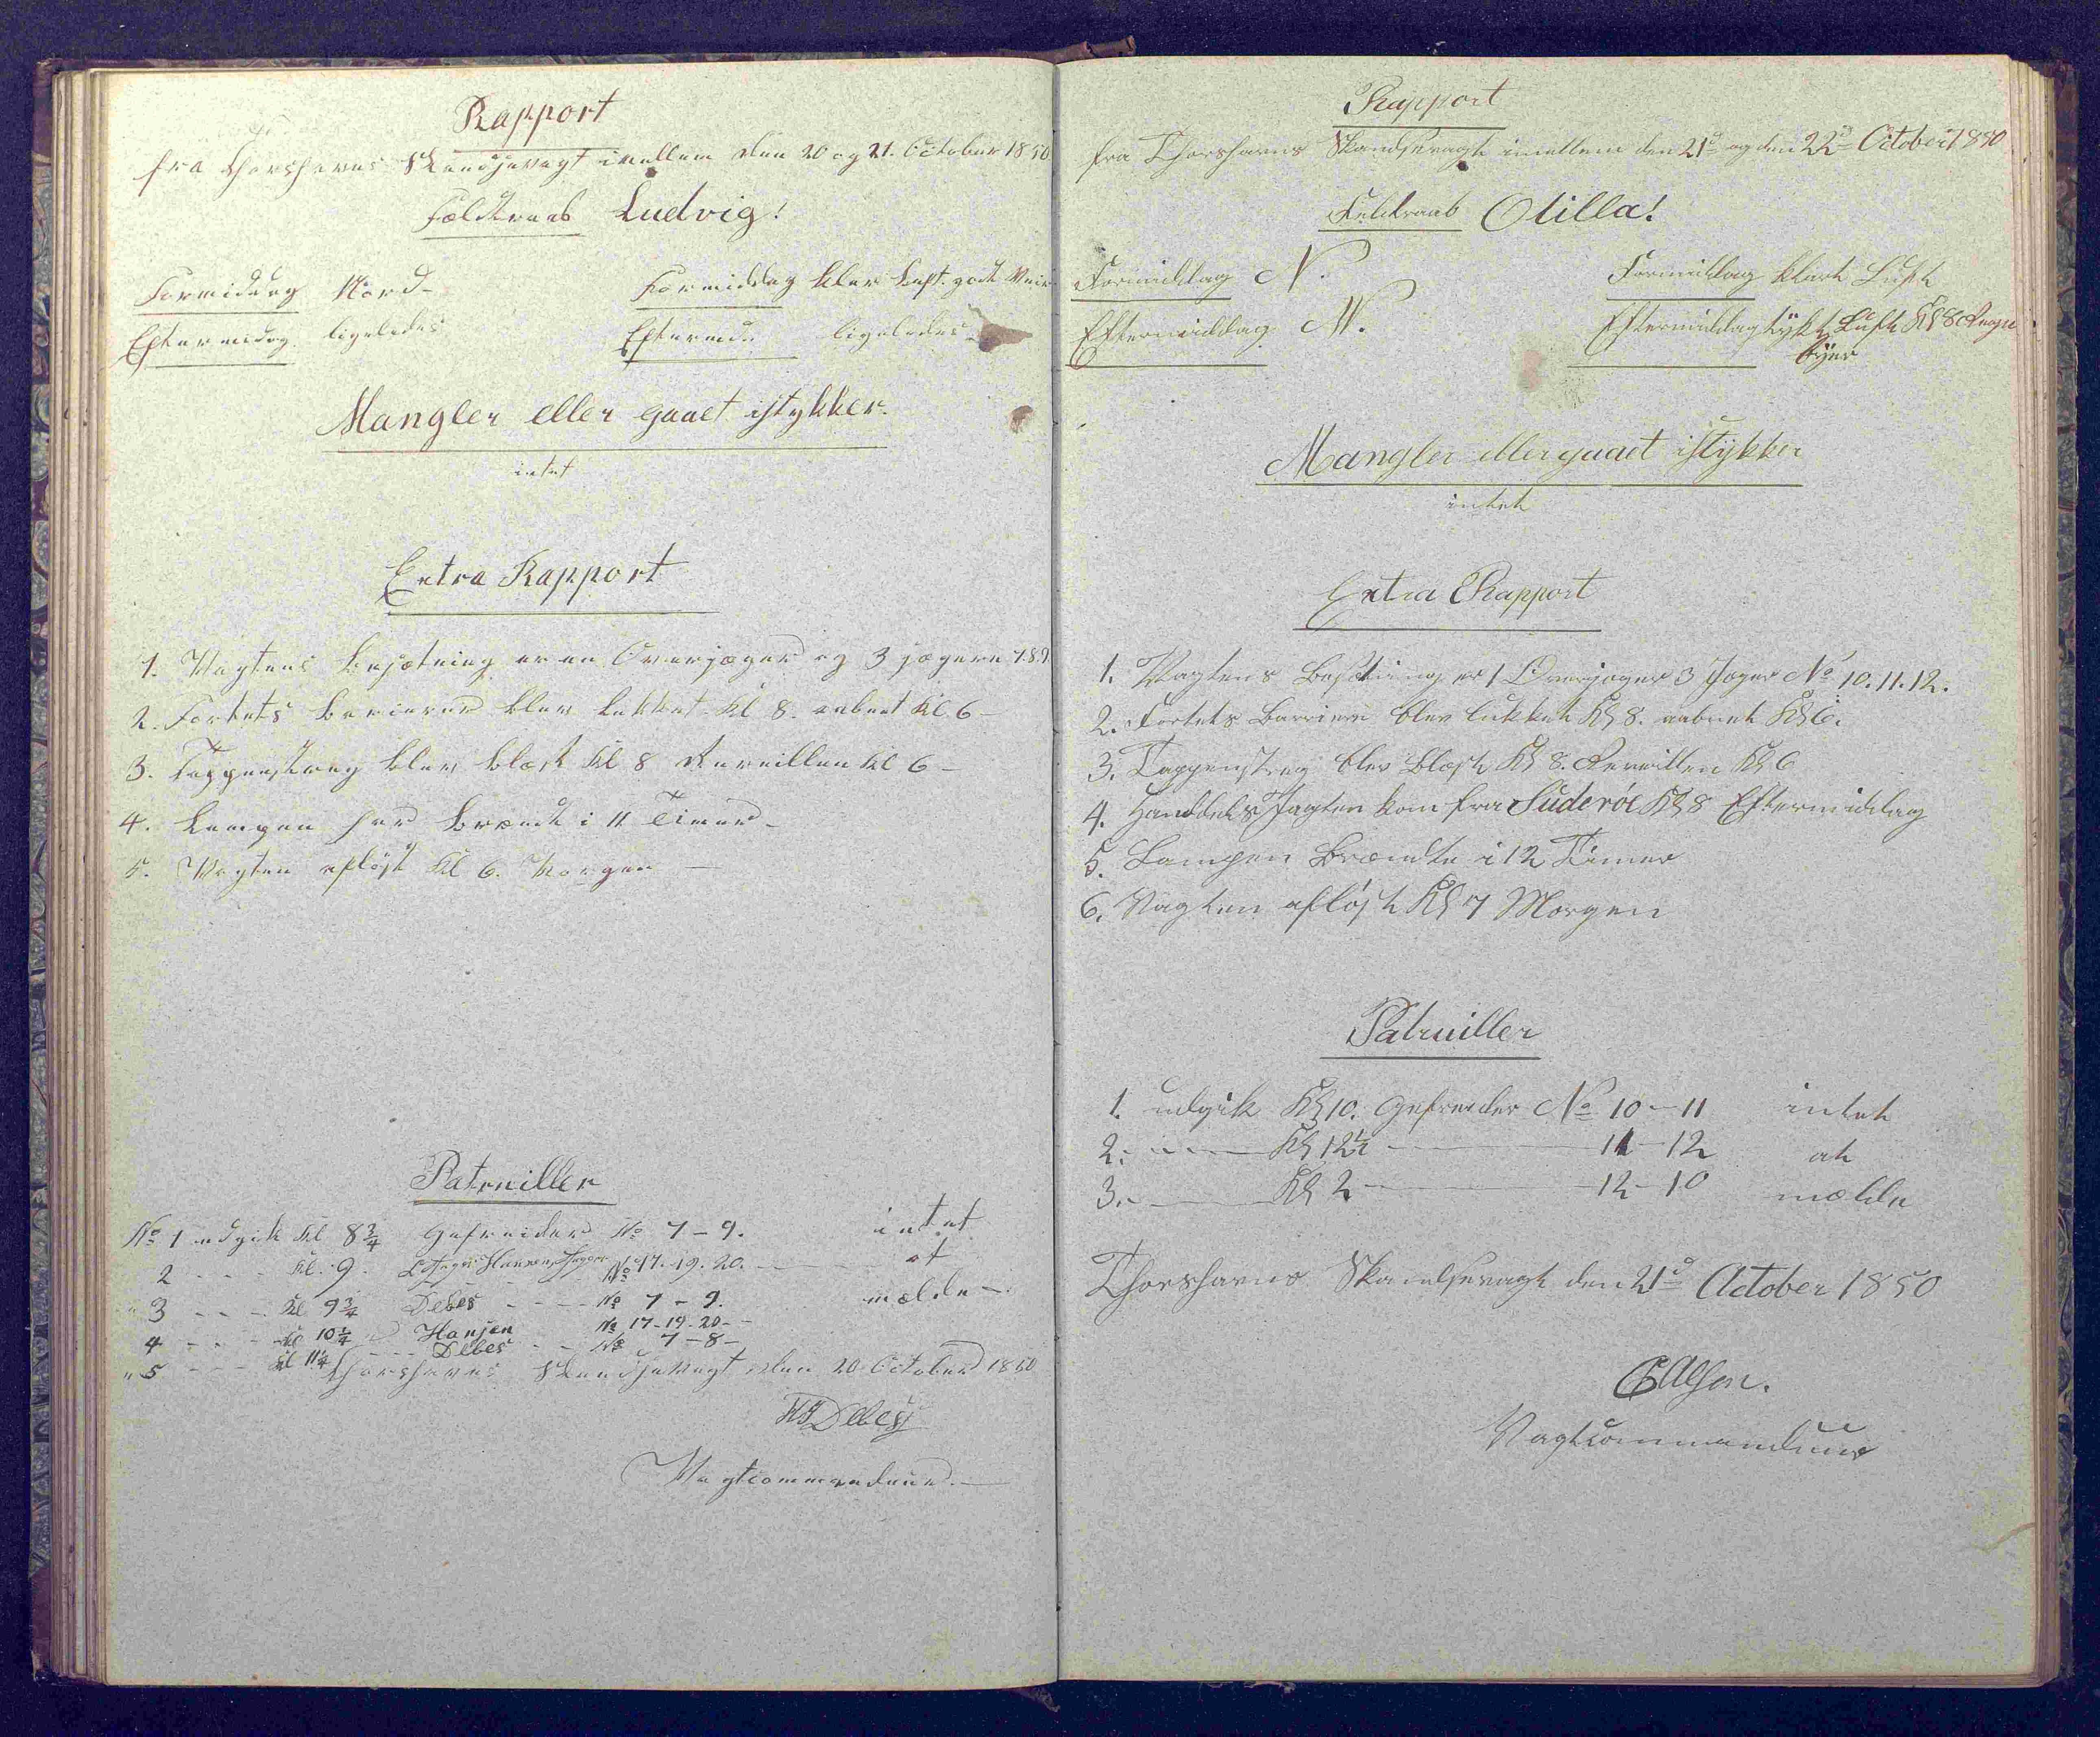 Rapport
fra Thorshavns Skandsevagt imellem den 20 og 21. October 1850
Fældtraab Ludvig!
Formiddag Nord-
Formiddag klar Luft. godt Veir
Eftermidag ligeledes
Eftermd. ligeledes
Mangler eller gaaet istykker.
intet
Extra Rapport
1. Vagtens besætning er en Overjæger og 3 jægere 7.8.9.
2. Fortets barierer blev lukket Kl 8. aabnet Kl 6-
3. Tappenstreg blev blæst Kl 8 Reveillen Kl 6-
4. Lampen har brændt i 11 Timer-
5. Vagten afløst Kl 6. Morgen
Patruiller
No 1 udgik Kl 8 3/4 Gefreider No 7-9. intet
2 - - - Kl. 9. Hansen No 17.-19.20. - at
" 3 - - - Kl 9 3/4 Debes - - - No 7-9. mælde-.
4 - - - Kl 10 1/4 Hansen No 17-19-20--
" 5 - - - Kl 11 1/4 - - - Debes - - No 7-8-
Thorshavns Skandsevagt den 20 October 1850
Debes
Vagtcommandeur.
Rapport
fra Thorshavns Skandsevagt imellem den 21d og den 22d October 1850
Feldtraab Otilla!
Formiddag N.
Formiddag klart Luft
Eftermiddag N.
Eftermiddag tykt Luft Kl 8 Regn
byer
Mangler eller gaaet istykker
intet
Extra Rapport
1. Vagtens Besætning er 1 Overjæger 3 Jæger No 10.11.12.
2. Fortets Barriere blev lukket Kl 8. aabnet Kl 6.
3. Tappenstreg blev blæst Kl 8. Reveillen Kl 6
4. Handdels Jagten kom fra Suderöe Kl 8 Eftermiddag
5. Lampen Brændte i 12 Timer
6. Vagten afløst Kl 7 Morgen
Patruiller
1. udgik Kl 10. Gefreider No 10-11 intet
2. - - - Kl 12 1/2 - 11-12 at
3. - Kl 2 - 12-10 mælde
Thorshavns Skandsevagt den 21d October 1850
Olsen.
Vagtcommandeur